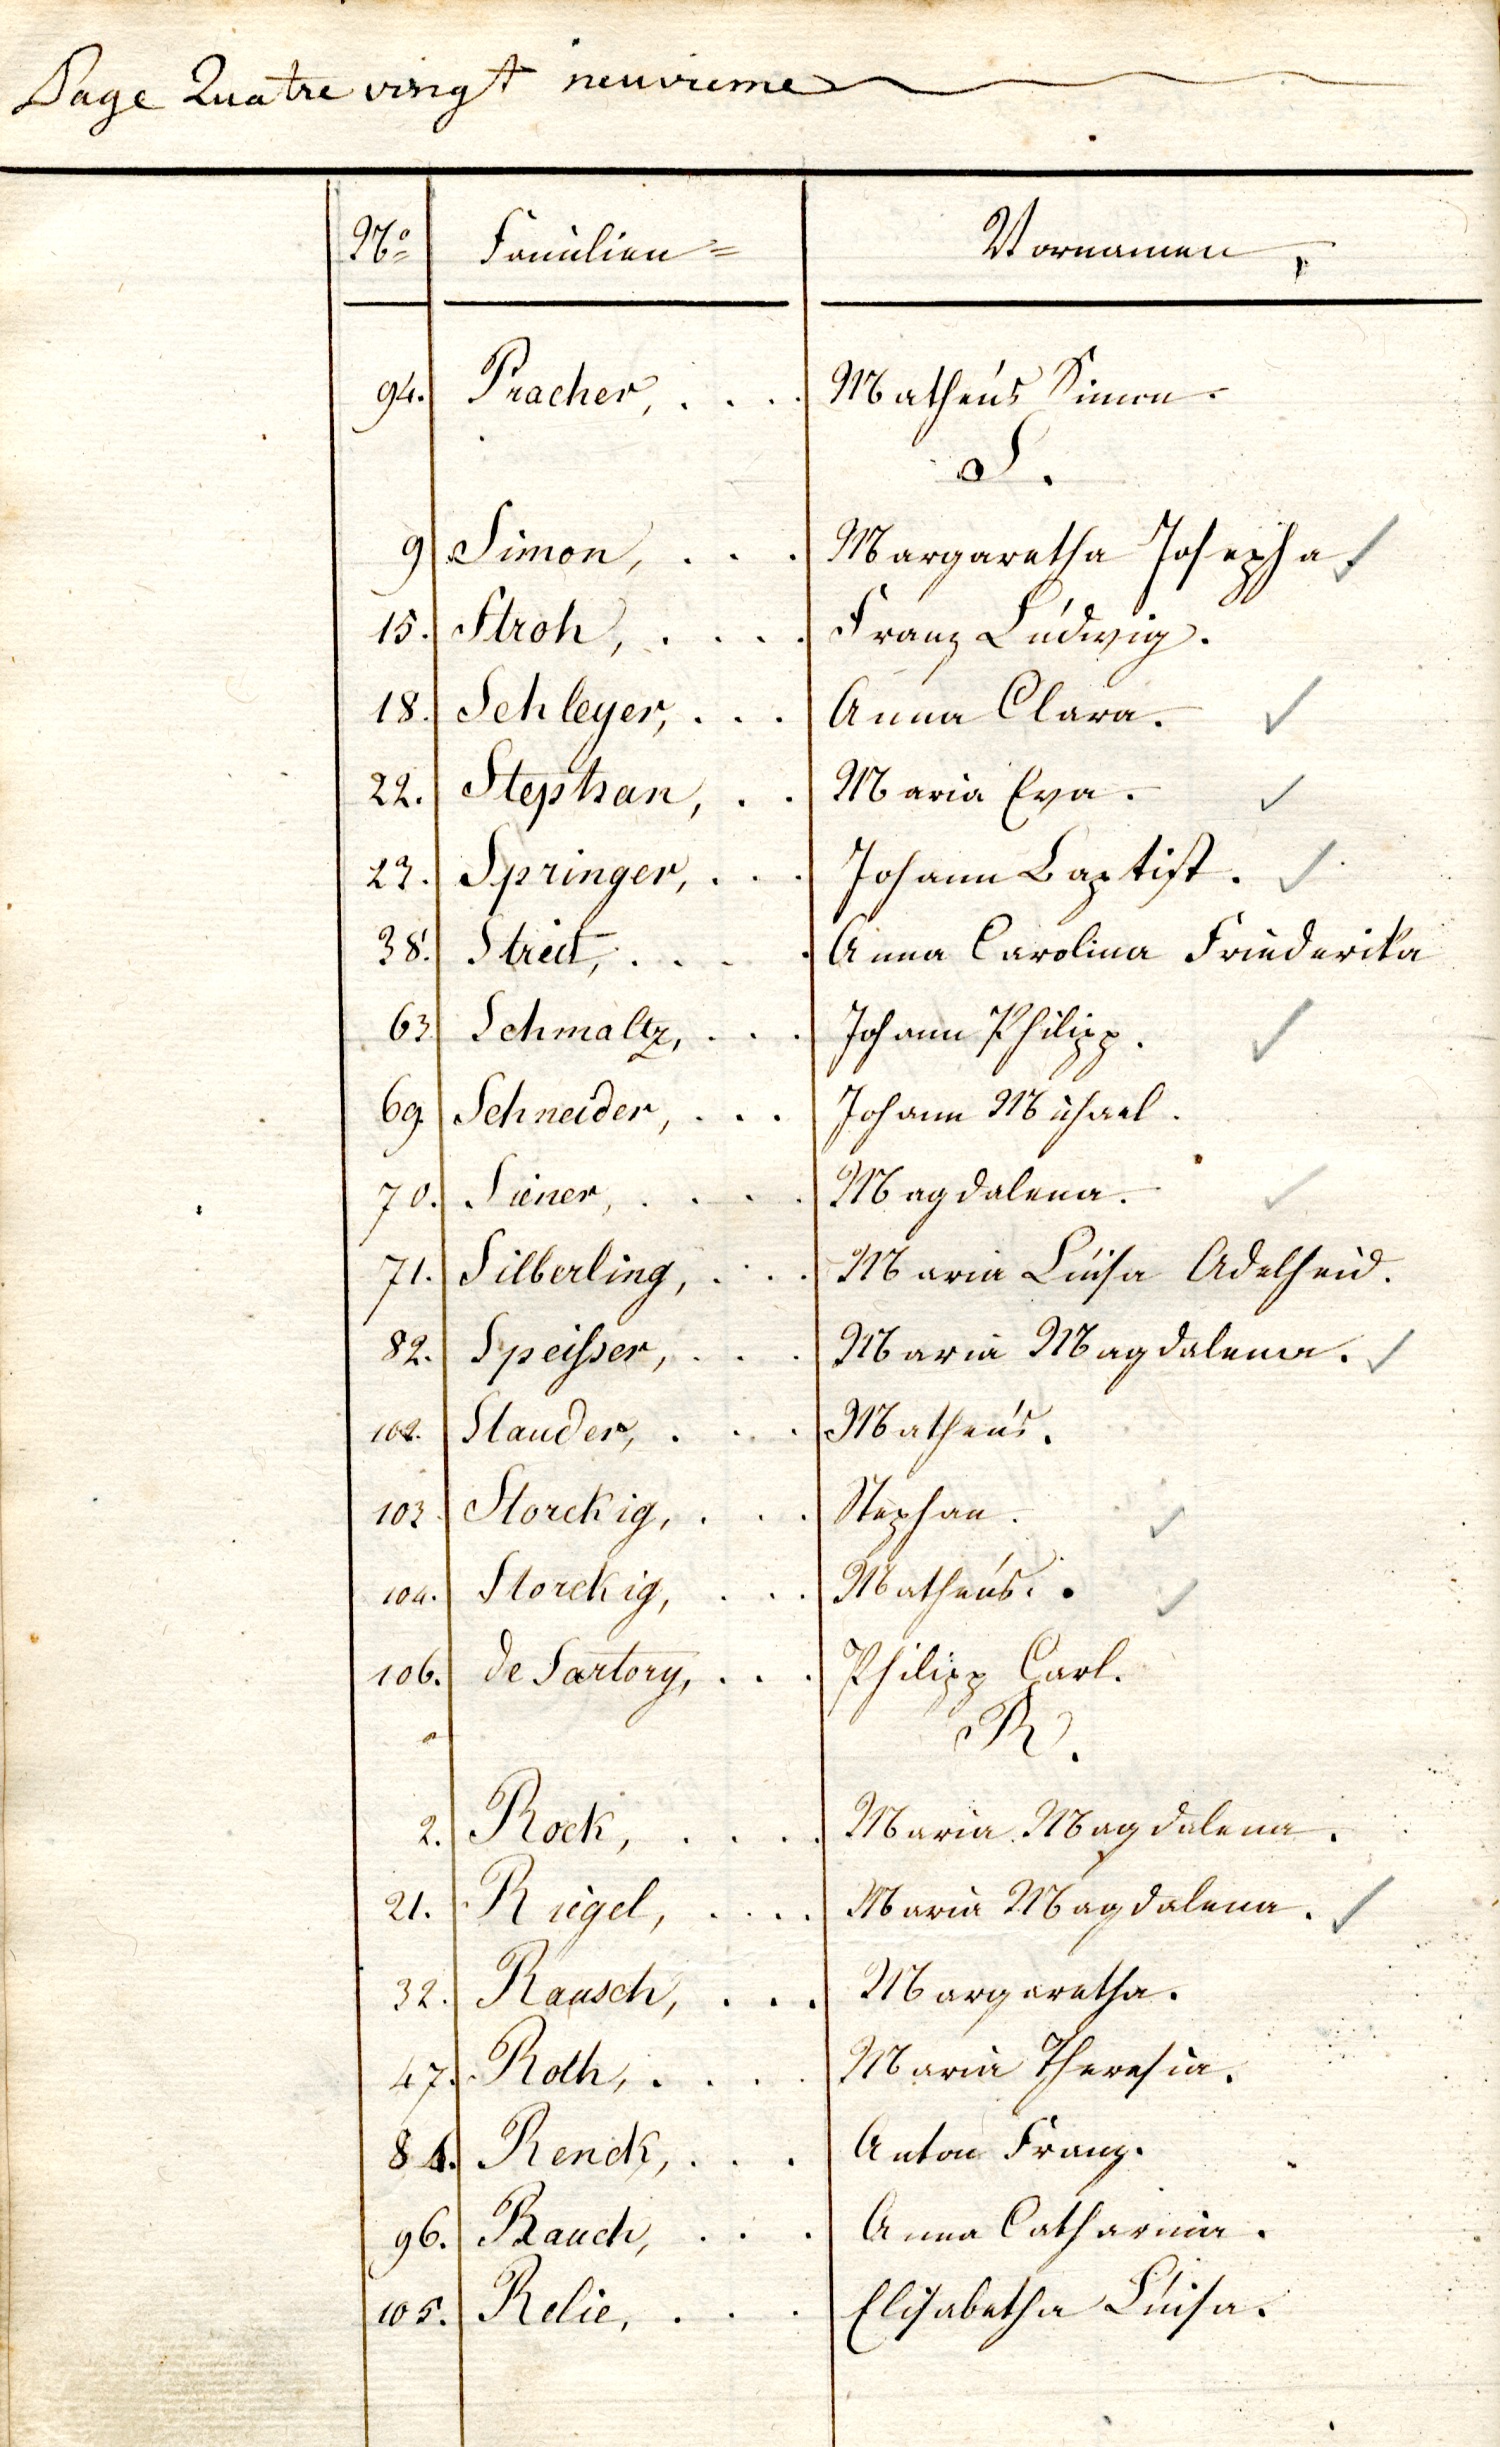 Page Quatre vingt neuvieme
No. Familien= Vornamen.
94. Pracher, .... Matheus Simon.
S.
9 Simon, ... Margaretha Josepha.
15. Stroh, .... Franz Ludwig.
18. Schleyer, ... Anna Clara.
22. Stephan, .. Maria Eva.
23. Springer, ... Johann Baptist.
38. Streit, .... Anna Carolina Friederika
63 Schmaltz, ... Johann Philipp.
69. Schneider, ... Johann Michael.
70. Siener, .... Magdalena.
71. Silberling, ... Maria Luisa Adelheid.
82. Speisser, ... Maria Magdalena.
102. Stauder, ... Matheus.
103. Storckig, ... Stephan.
104. Storckig, ... Matheus.
106. de Sartory, ... Philipp Carl.
R.
2. Rock, .... Maria Magdalena.
21. Riegel, .... Maria Magdalena.
32. Rausch, ... Margaretha.
47. Roth, .... Maria Theresia.
Renck, ... Anton Franz.
96. Rauch, ... Anna Catharina.
105. Relie, ... Elisabetha Luisa.